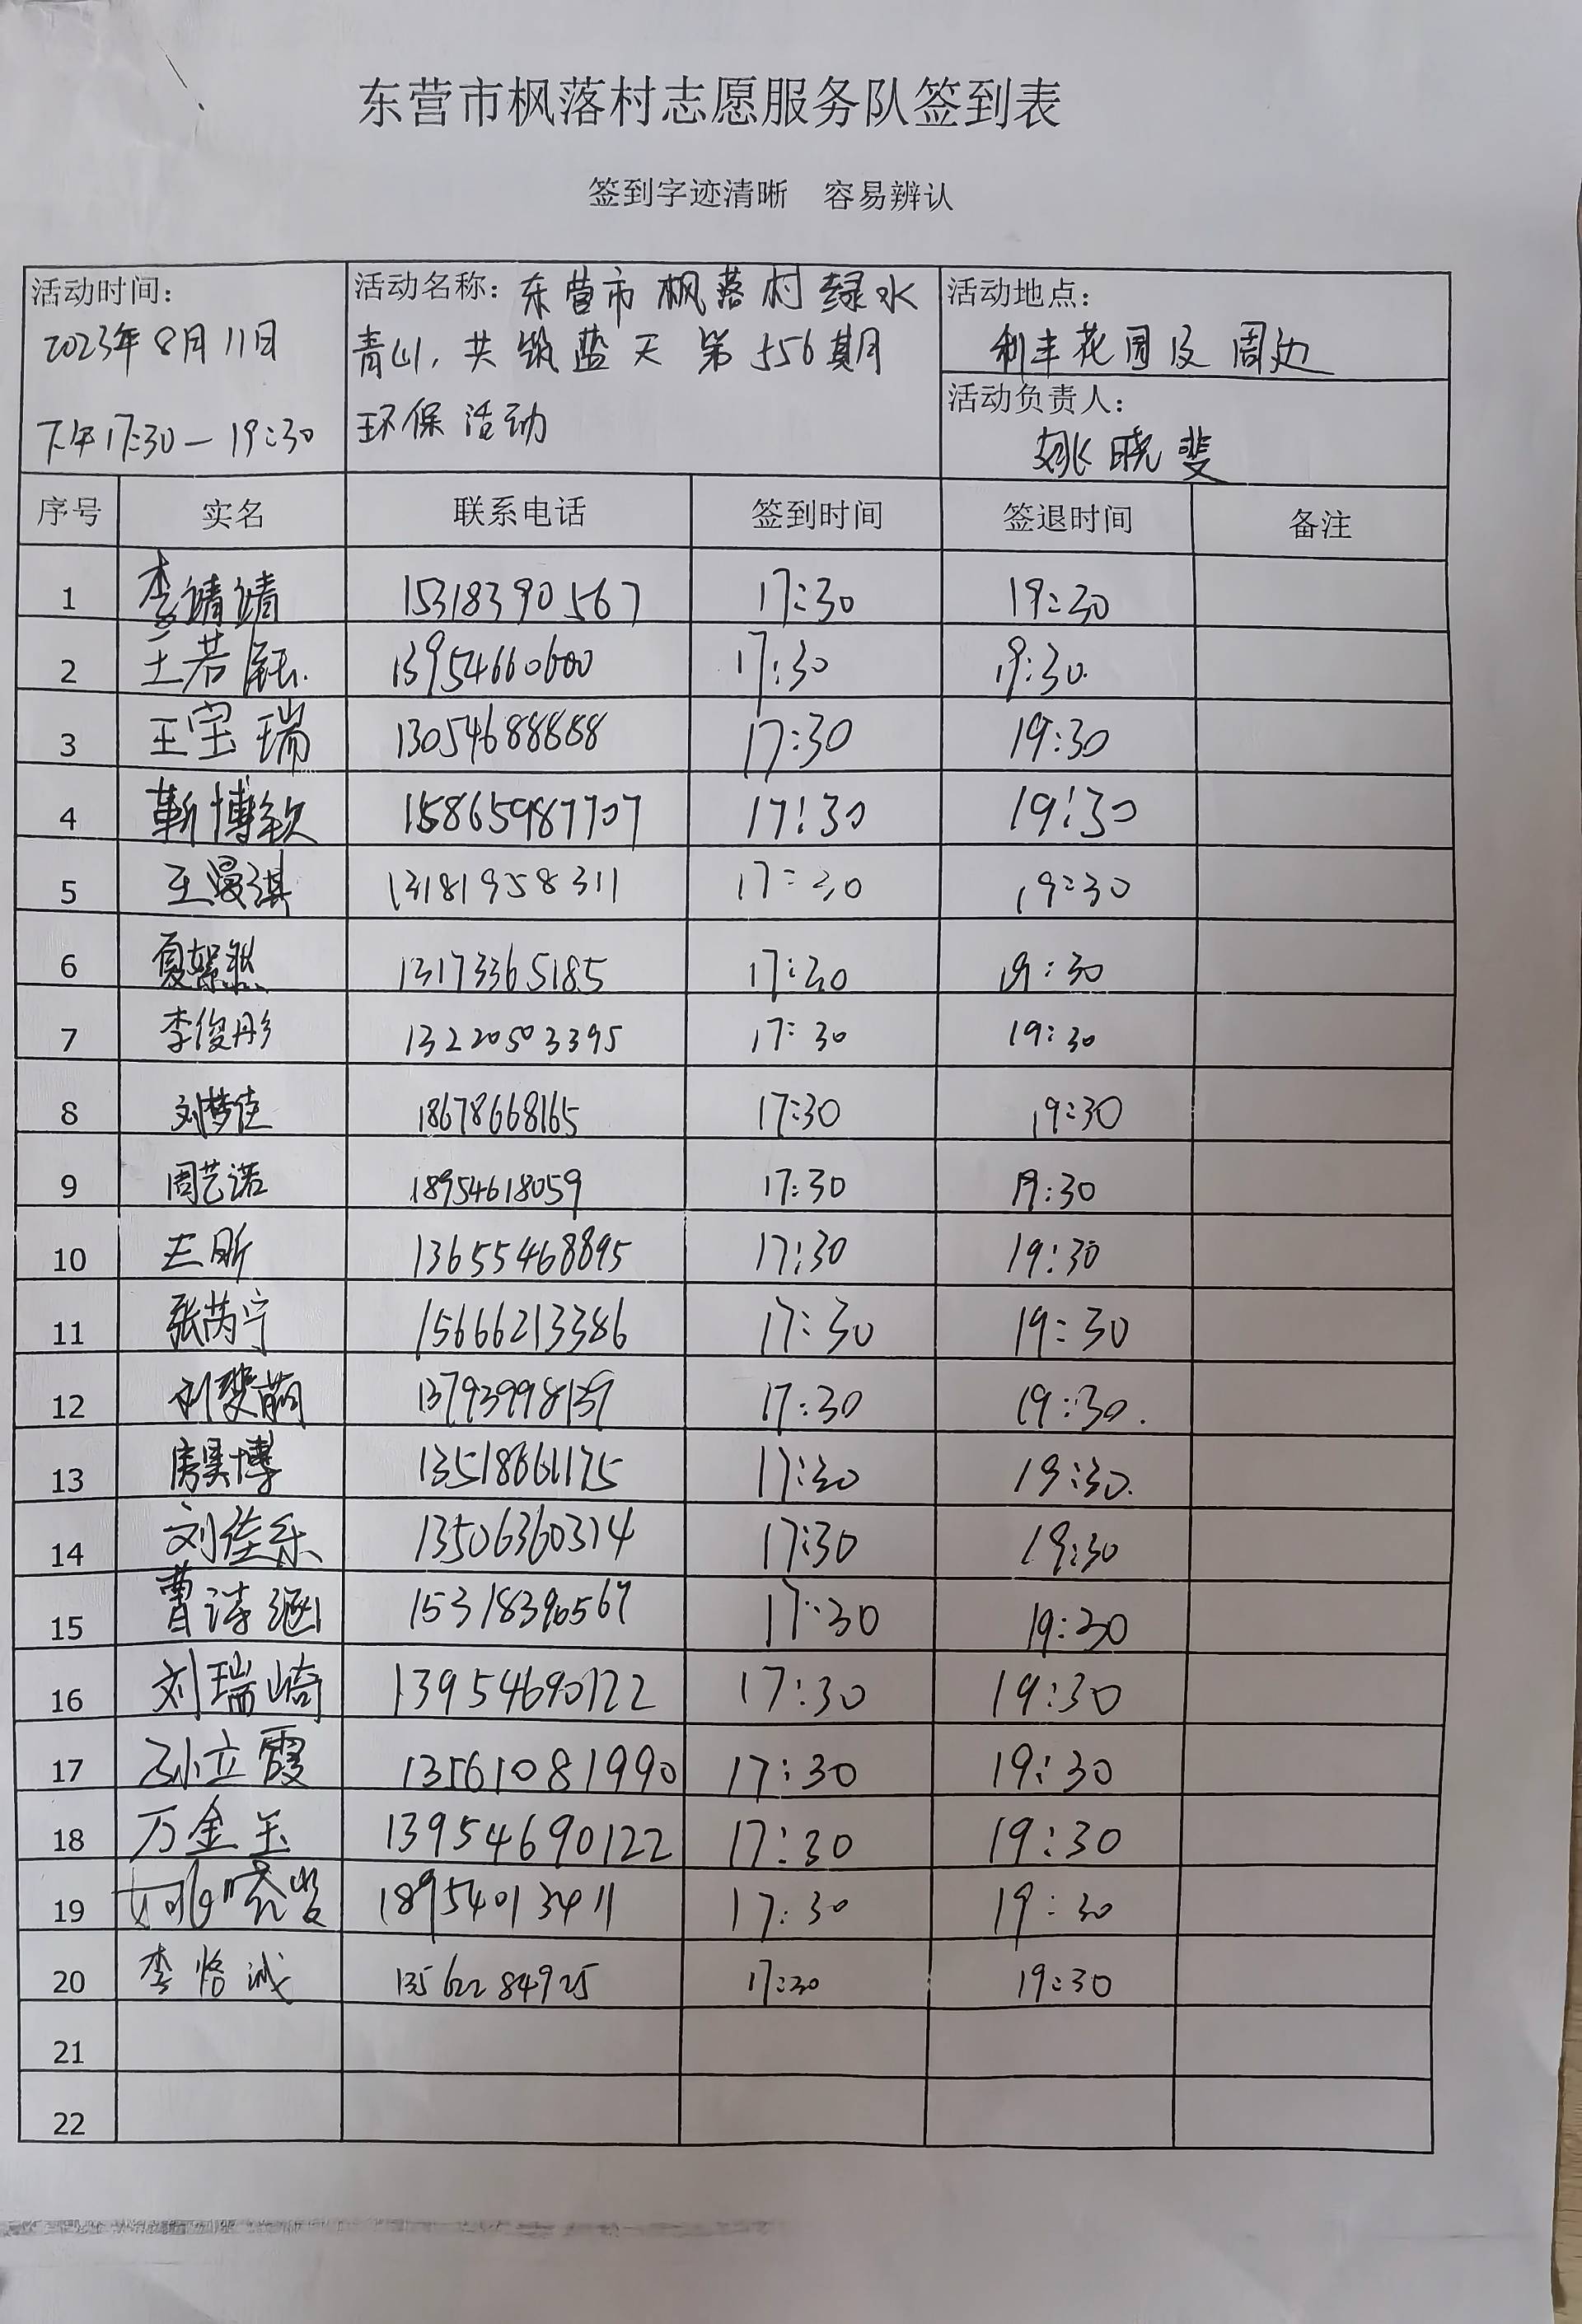 东营市枫落村志愿服务队签到表
签到字迹清晰 容易辨认
活动时间:
2023年8月11日
下午17:30—19:30
活动名称:东营市枫落村绿水
青山,共筑蓝天第556期
环保活动
活动地点:
利丰花园及周边
活动负责人:
姚晓斐
序号 实名 联系电话 签到时间 签退时间 备注
1 李靖靖 15318390567 17:30 19:30
2 王若钰 13954660600 17:30 19:30
3 王宝瑞 13054688888 17:30 19:30
4 靳博钦 15865987707 17:30 19:30
5 王漫淇 13181958311 17:30 19:30
6 夏絮然 13173365185 17:30 19:30
7 李俊彤 13220503395 17:30 19:30
8 刘梦佳 18678668165 17:30 19:30
9 周艺诺 18954618059 17:30 19:30
10 13655468895 17:30 19:30
11 张芮宁 15666213386 17:30 19:30
12 刘斐萌 13793998139 17:30 19:30
13 房昊博 13518661175 17:30 19:30
14 刘佳乐 13506360314 17:30 19:30
15 曹诗涵 15318390567 17:30 19:30
16 刘瑞崎 13954690122 17:30 19:30
17 孙立霞 13561081990 17:30 19:30
18 万金玉 13954690122 17:30 19:30
19 姚晓斐 18954013411 17:30 19:30
20 李恪诚 13562284925 17:30 19:30
21
22